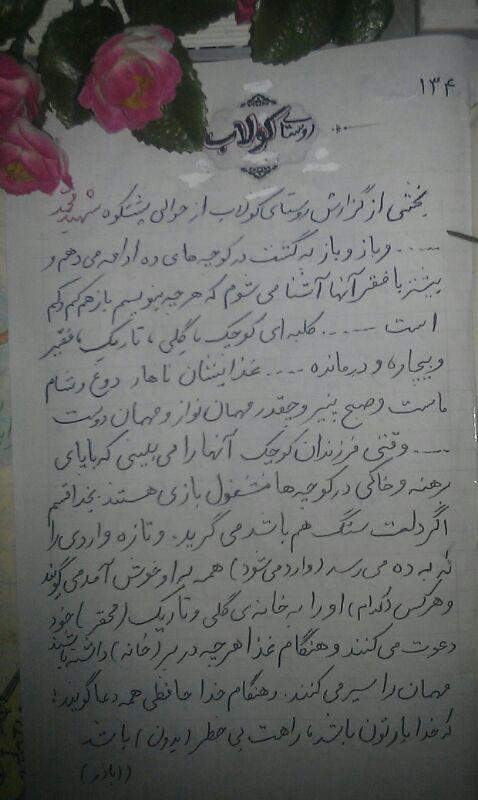 ۱۳۴
روستای کولاب
بخشی از گزارش روستای کولاب از حوالی پشتکوه شهید محمد
..... و باز و باز به گشت در کوچه های ده ادامه می دهم و
بیشتر با فقر آنها آشنا می شوم که هر چه بنویسم باز هم کم و کم
است ..... کلبه ای کوچک ، گِلی ، تاریک ، فقیر
و بیچاره و درمانده .... غذایشان ناهار دوغ و شام
ماست و صبح پنیر و چقدر مهمان نواز و مهمان دوست
..... وقتی فرزندان کوچک آنها را می بینی که با پای
برهنه و خاکی در کوچه ها مشغول بازی هستند بخدا قسم
اگر دلت سنگ هم باشد می گرید. و تازه واردی را
که به ده می رسد (وارد می شود) همه به او خوش آمد می گویند
و هر کس (کدام) او را به خانه ی گلی و تاریک (محقر) خود
دعوت می کنند و هنگام غذا هر چه در بر (خانه) داشته باشند
مهمان را سیر می کنند. و هنگام خدا حافظی همه دعا گویند :
که خدا یارتون باشد، راهت بی خطر (بدون) باشد
((اباذر)